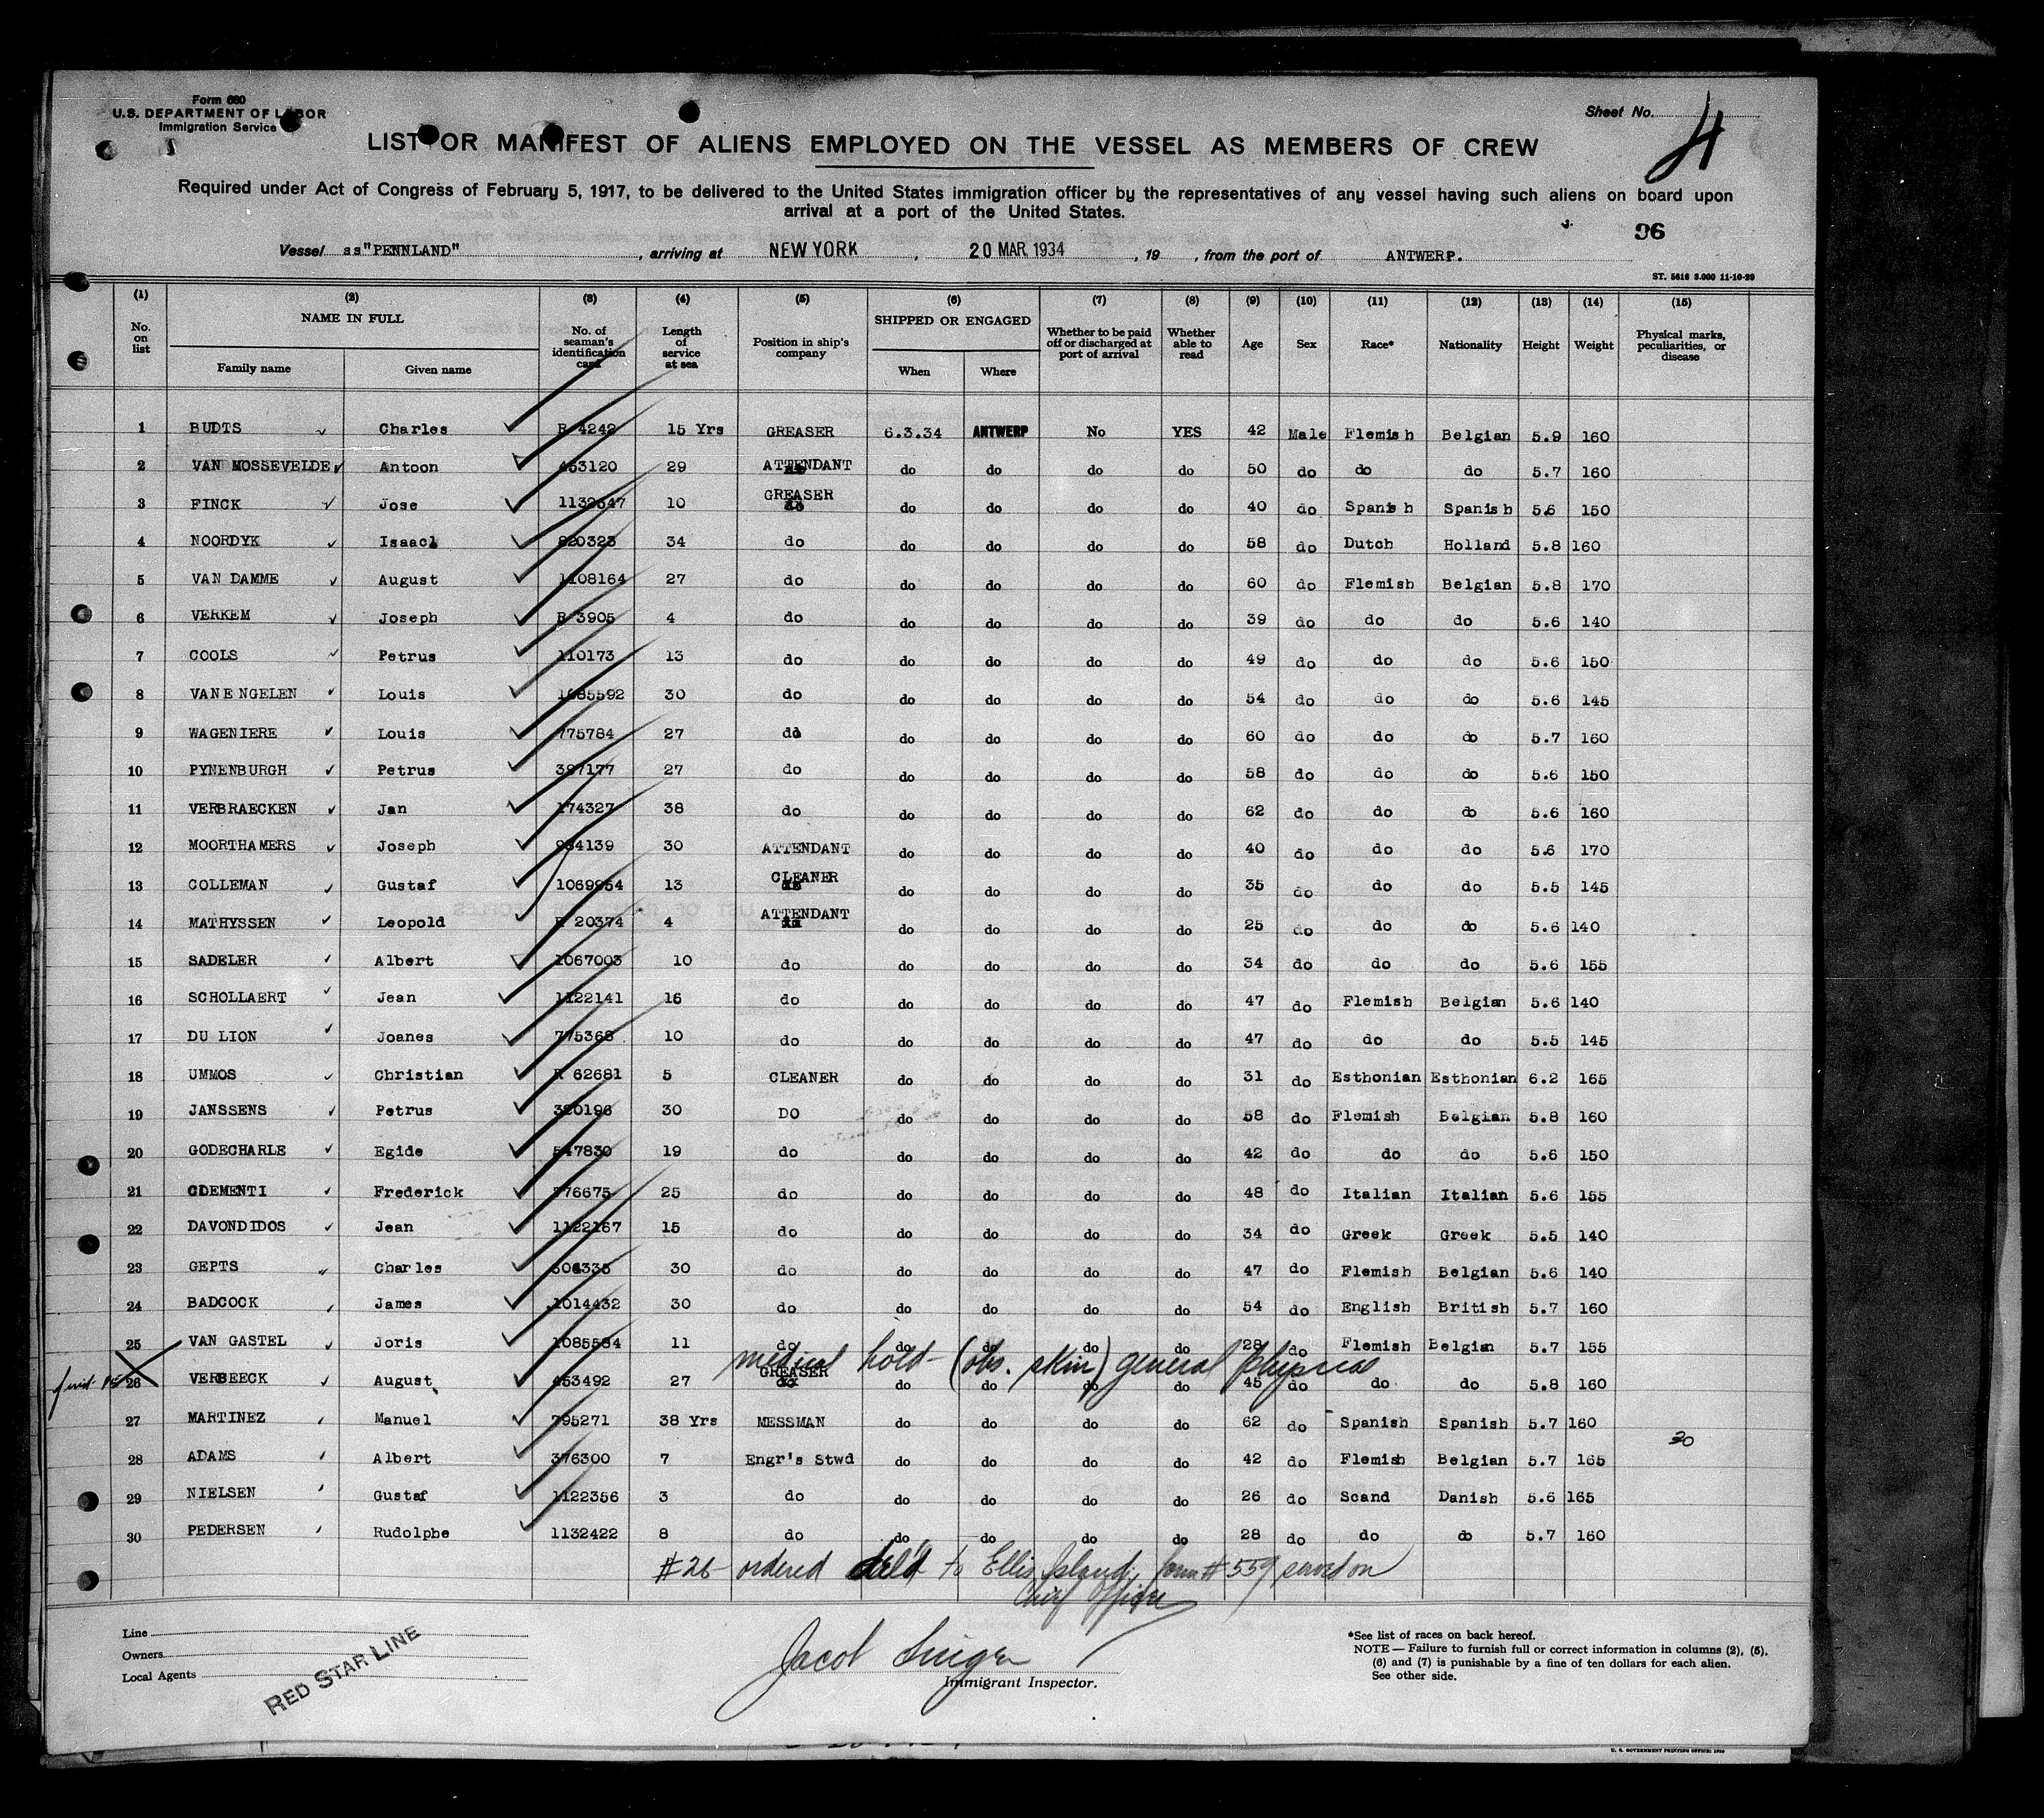 Form 680
U.S. DEPARTMENT OF LABOR
Immigration Service
Sheet No. 4
LIST OR MANIFEST OF ALIENS EMPLOYED ON THE VESSEL AS MEMBERS OF CREW
Required under Act of Congress of February 5, 1917, to be delivered to the United States immigration officer by the representatives of any vessel having such aliens on board upon
arrival at a port of the United States.
96
Vessel ss"PENNLAND", arriving at NEW YORK, 20 MAR. 1934, 19 , from the port of ANTWERP.
ST. 5616 3.000 11-10-29
(1) (2) (3) (4) (5) (6) (7) (8) (9) (10) (11) (12) (13) (14) (15)
No. on list NAME IN FULL Family name Given name No. of seaman's identification card Length of service at sea Position in ship's company SHIPPED OR ENGAGED When Where Whether to be paid off or discharged at port of arrival Whether able to read Age Sex Race* Nationality Height Weight Physical marks, peculiarities, or disease
1 BUDTS Charles R 4242 15 Yrs GREASER 6.3.34 ANTWERP No YES 42 Male Flemish Belgian 5.9 160
2 VAN MOSSEVELDE Antoon 453120 29 ATTENDANT do do do do 50 do do do 5.7 160
3 FINCK Jose 1132647 10 GREASER do do do do 40 do Spanish Spanish 5.6 150
4 NOORDYK Isaac 820323 34 do do do do do 58 do Dutch Holland 5.8 160
5 VAN DAMME August 1108164 27 do do do do do 60 do Flemish Belgian 5.8 170
6 VERKEM Joseph R 3905 4 do do do do do 39 do do do 5.6 140
7 COOLS Petrus 110173 13 do do do do do 49 do do do 5.6 150
8 VAN ENGELEN Louis 1085592 30 do do do do do 54 do do do 5.6 145
9 WAGENIERE Louis 775784 27 do do do do do 60 do do do 5.7 160
10 PYNENBURGH Petrus 397177 27 do do do do do 58 do do do 5.6 150
11 VERBRAECKEN Jan 174327 38 do do do do do 62 do do do 5.6 160
12 MOORTHAMERS Joseph 984139 30 ATTENDANT do do do do 40 do do do 5.6 170
13 COLLEMAN Gustaf 1069954 13 CLEANER do do do do 35 do do do 5.5 145
14 MATHYSSEN Leopold R 20374 4 ATTENDANT do do do do 25 do do do 5.6 140
15 SADELER Albert 1067003 10 do do do do do 34 do do do 5.6 155
16 SCHOLLAERT Jean 1122141 16 do do do do do 47 do Flemish Belgian 5.6 140
17 DU LION Joanes 775368 10 do do do do do 47 do do do 5.5 145
18 UMMOS Christian R 62681 5 CLEANER do do do do 31 do Esthonian Esthonian 6.2 165
19 JANSSENS Petrus 320196 30 DO do do do do 58 do Flemish Belgian 5.8 160
20 GODECHARLE Egide 547830 19 do do do do do 42 do do do 5.6 150
21 CLEMENTI Frederick 776675 25 do do do do do 48 do Italian Italian 5.6 155
22 DAVONDIDOS Jean 1122167 15 do do do do do 34 do Greek Greek 5.5 140
23 GEPTS Charles 504335 30 do do do do do 47 do Flemish Belgian 5.6 140
24 BADCOCK James 1014432 30 do do do do do 54 do English British 5.7 160
25 VAN GASTEL Joris 1085584 11 do do do do do 28 do Flemish Belgian 5.7 155
medical hold - (obs. skin) general physical
26 VERBEECK August 453492 27 GREASER do do do do 45 do do do 5.8 160
27 MARTINEZ Manuel 795271 38 Yrs MESSMAN do do do do 62 do Spanish Spanish 5.7 160
30
28 ADAMS Albert 376300 7 Engr's Stwd do do do do 42 do Flemish Belgian 5.7 165
29 NIELSEN Gustaf 1122356 3 do do do do do 26 do Scand Danish 5.6 165
30 PEDERSEN Rudolphe 1132422 8 do do do do do 28 do do do 5.7 160
#26 ordered del'd to Ellis Island, form # 559 served on
Chief Officer
Line
Owners
Local Agents
RED STAR LINE
Jacob Singer
Immigrant Inspector.
*See list of races on back hereof.
NOTE — Failure to furnish full or correct information in columns (2), (5),
(6) and (7) is punishable by a fine of ten dollars for each alien.
See other side.
U. S. GOVERNMENT PRINTING OFFICE: 1929